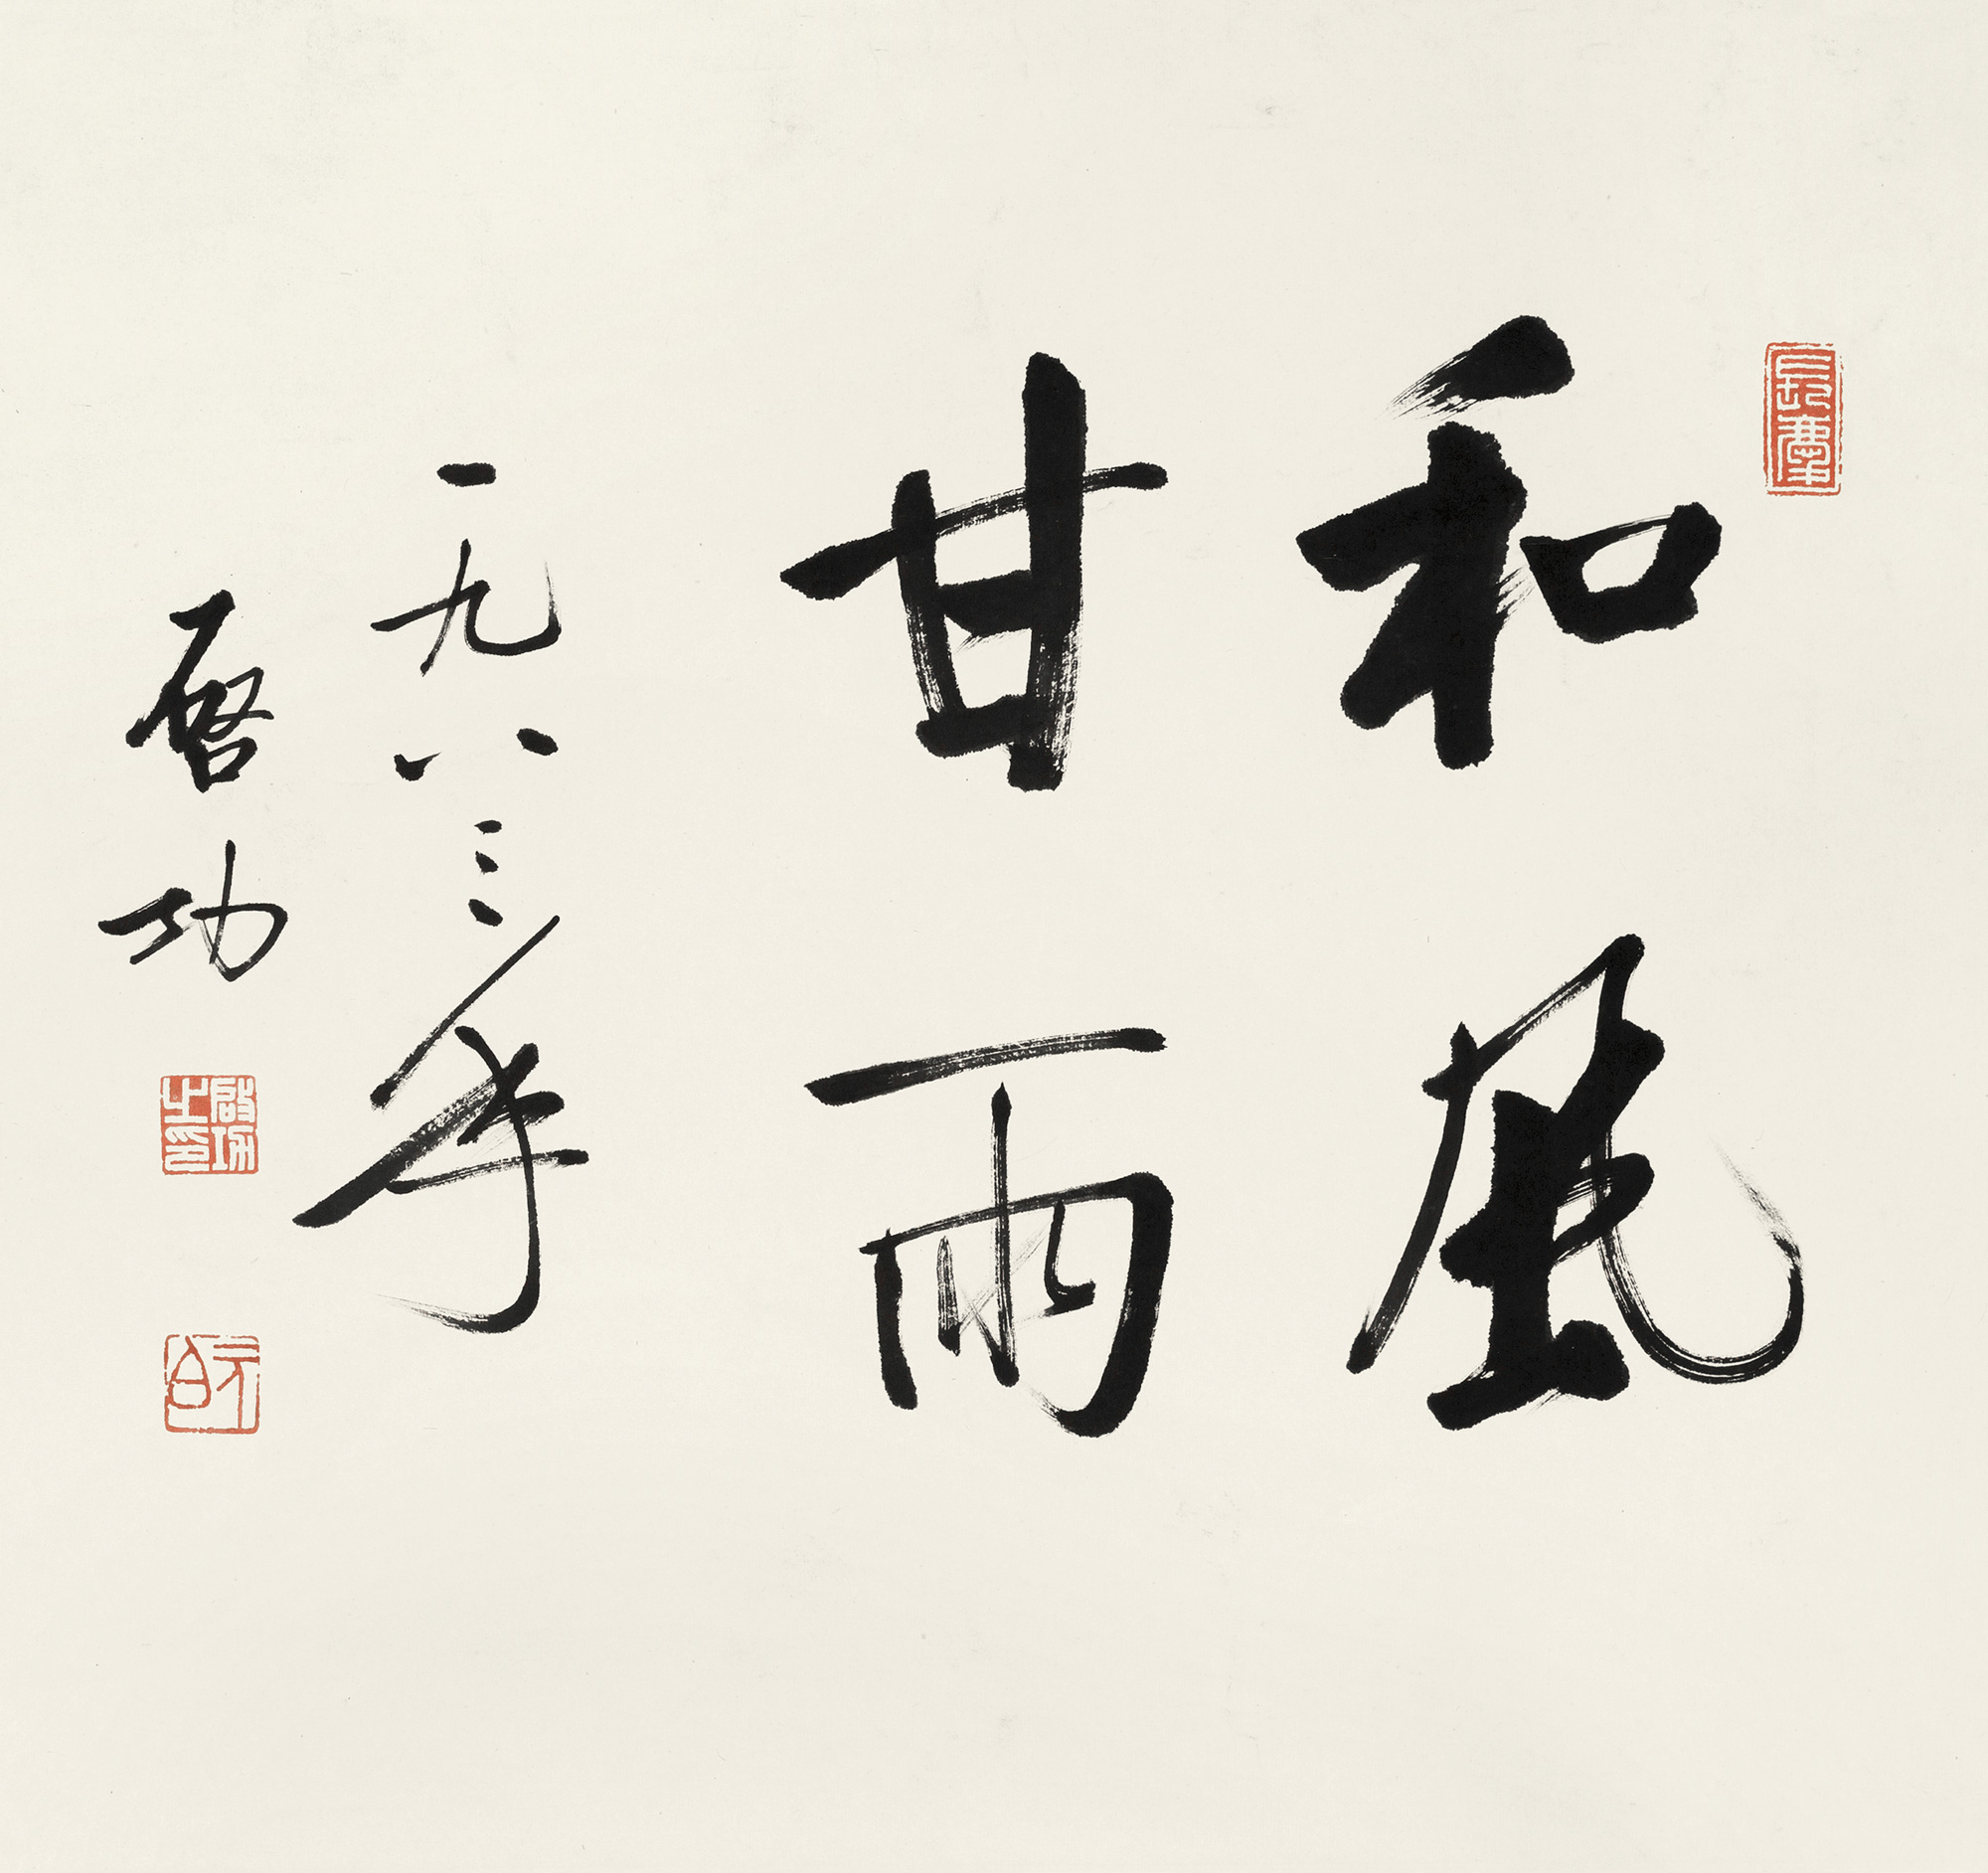 和風
甘雨
一九八三年
啓功
啟功之印
元白